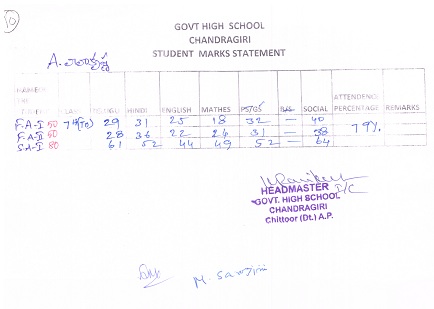 10
GOVT HIGH SCHOOL
CHANDRAGIRI
STUDENT MARKS STATEMENT
A.
HINDI ENGLISH MATHES PS/BS SOCIAL ATTENDENC PERCENTAGE REMARKS
F.A-I 50 7th(TE) 29 31 25 18 32 — 40 79%
F.A-II 50 28 36 22 24 31 — 38
S.A-I 80 61 52 44 49 52 — 64
HEADMASTER I/C
GOVT. HIGH SCHOOL
CHANDRAGIRI
Chittoor (Dt.) A.P.
M. Sarojini